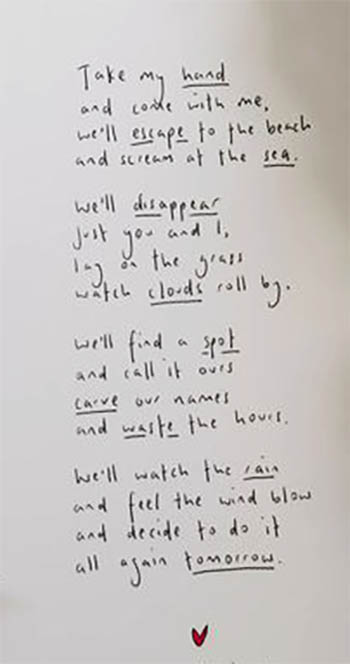 Take my hand
and come with me,
we'll escape to the beach
and scream at the sea.
We'll disappear
just you and I,
lay on the grass
watch clouds roll by.
We'll find a spot
and call it ours
carve our names
and waste the hours.
We'll watch the rain
and feel the wind blow
and decide to do it
all again tomorrow.